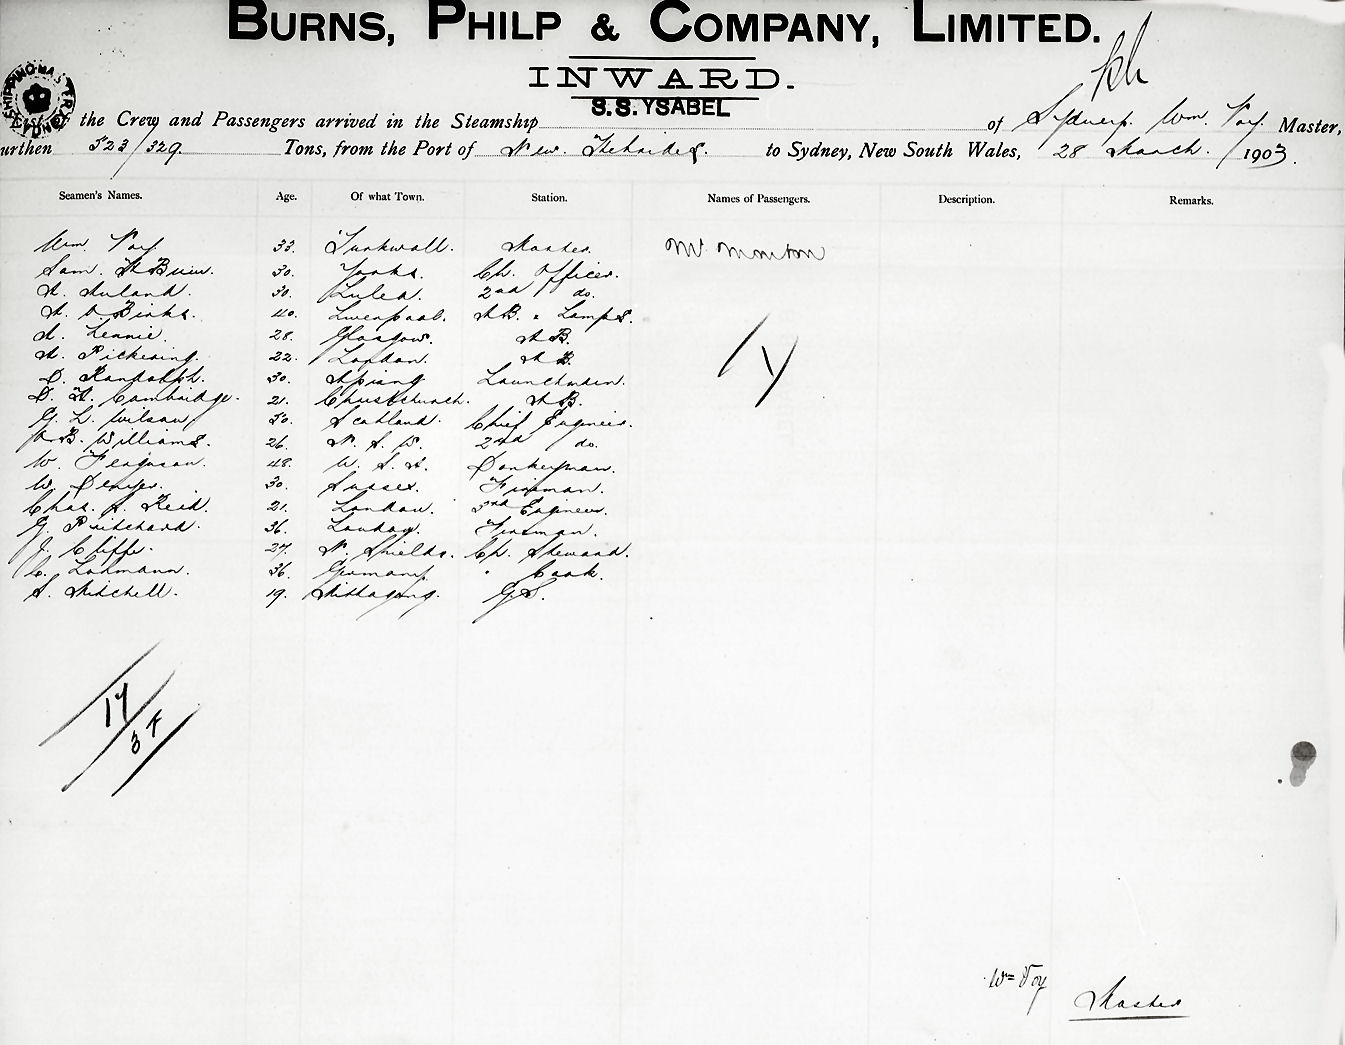 BURNS, PHILP & COMPANY, LIMITED.
INWARD.
S.S. YSABEL
the Crew and Passengers arrived in the Steamship of Sydney. Wm. Voy. Master,
urthen 523/329. Tons, from the Port of New. Hebrides. to Sydney, New South Wales, 28 March. 1903.
Seamen's Names. Age. Of what Town. Station. Names of Passengers. Description. Remarks.
Wm. Voy. 33. Master. Mr. Monton
Sam. 30. Yorks. Ch. Officer.
A. 30. Lulea. 2nd do.
A. Binks. 40. Liverpool. A.B. & Lamps.
A. Rennie. 28. Glasgow. A.B.
A. Pickering. 22. London. A.B.
D. Randolph. 30. Apiang Launchman.
D. A. Cambridge. 21. Christchurch. A.B.
G. L. Wilson. 50. Scotland. Chief Engineer.
B. Williams. 26. N. S. W. 2nd do.
W. Ferguson. 48. U. S. A. Donkeyman.
W. Denyer. 30. Sussex. Fireman.
Chas. A. Reid. 21. London. 3rd Engineer.
G. Pritchard. 36. London. Fireman.
J. Cliffe. 27. N. Shields. Ch. Steward.
C. Lohmann. 36. Germany. " Cook.
S. Mitchell. 19. Mittagong. G.S.
17
37
Wm Voy
Master